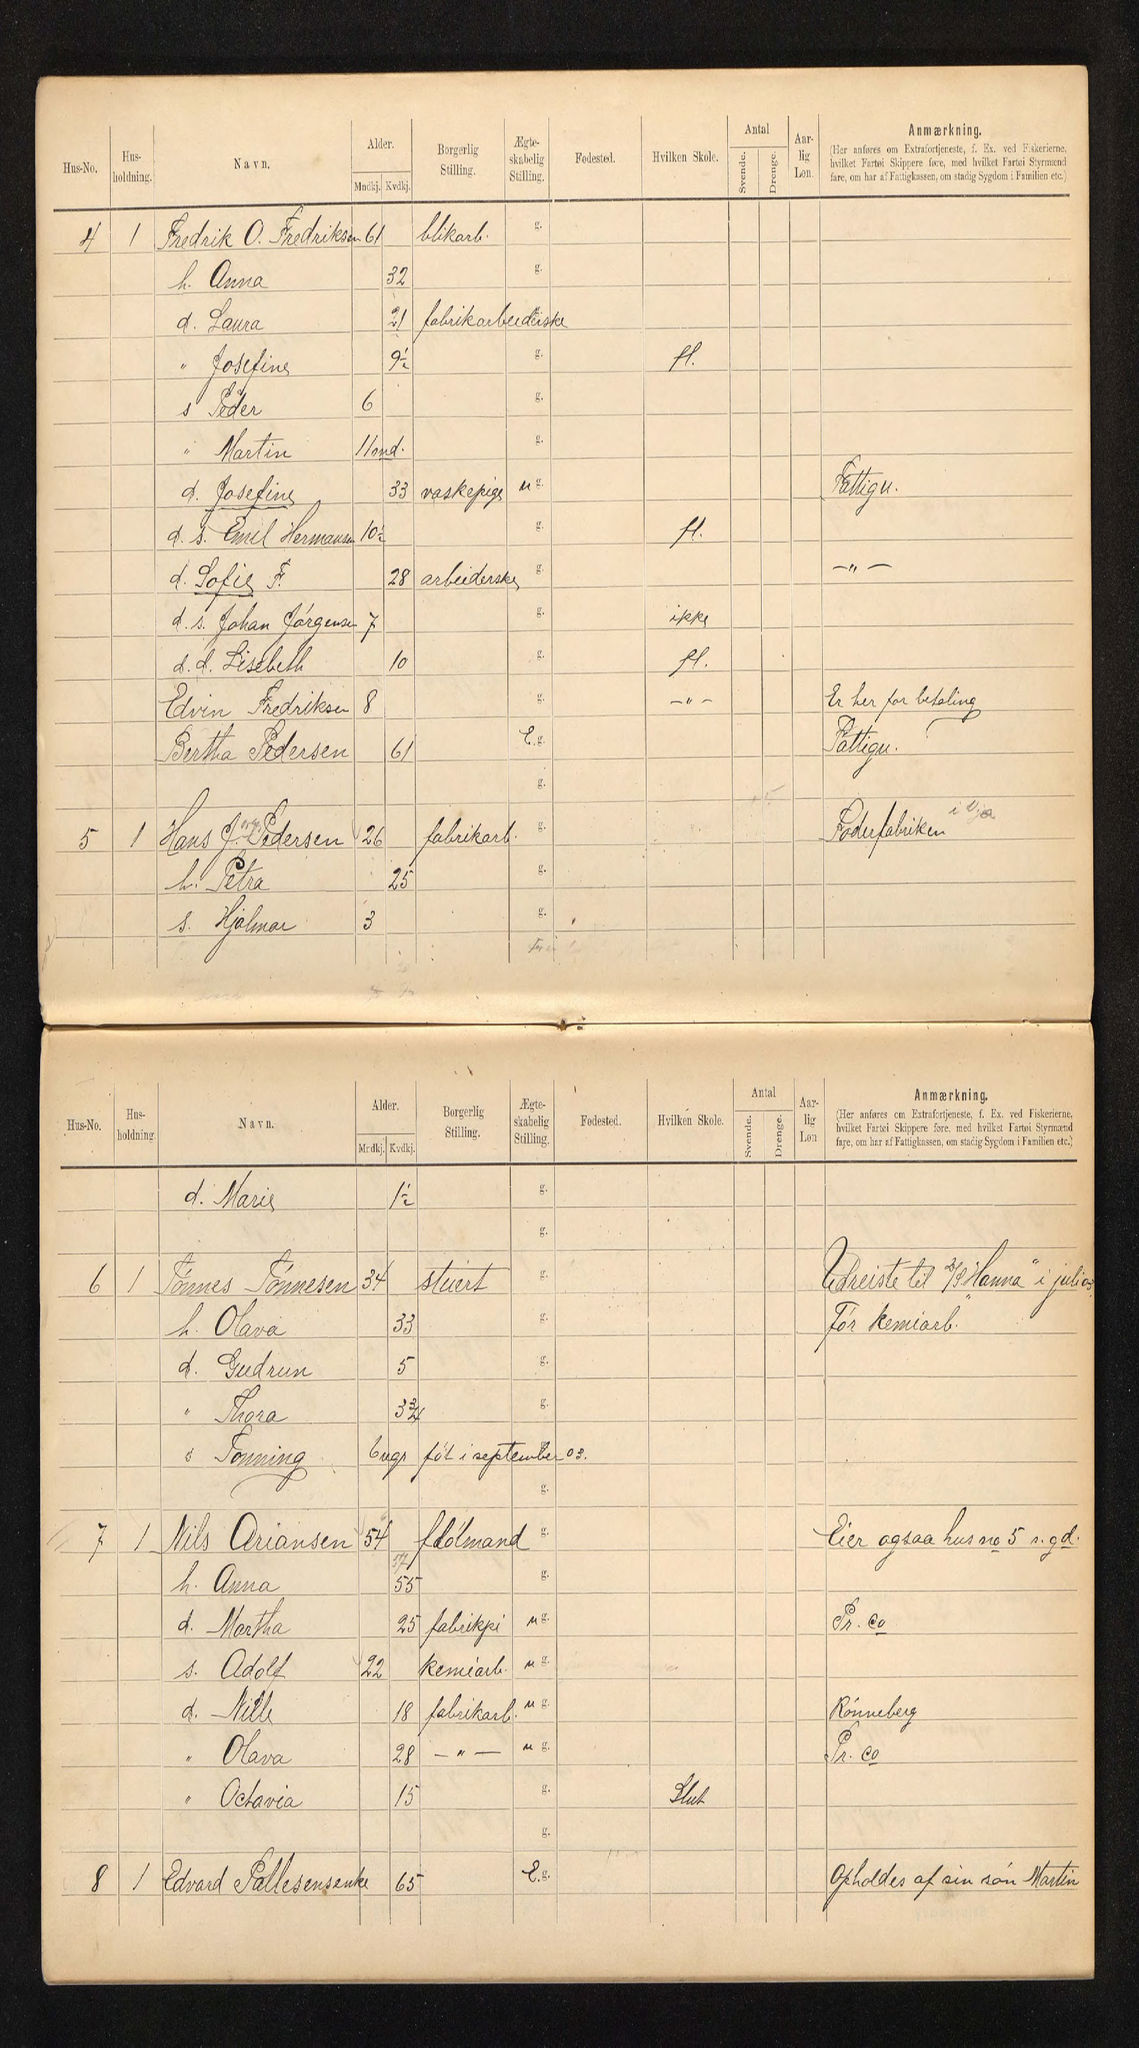 Hus-No. Hus-holdning. Navn. Alder. Mndkj. Kvdkj. Borgerlig Stilling. Ægte-skabelig Stilling. Fødested. Hvilken Skole. Antal Svende. Drenge. Aar-lig Løn. Anmærkning.
(Her anføres om Extrafortjeneste, f. Ex. ved Fiskerierne,
hvilket Fartøi Skippere føre, med hvilket Fartøi Styrmænd
fare, om har af Fattigkassen, om stadig Sygdom i Familien etc.)
4 1 Fredrik O. Fredriksen 61 blikarb. g.
h. Anna 32 g.
d. Laura 21 fabrikarbeiderske g.
" Josefine 9½ g. fl.
s Peder 6 g.
" Martin 11 ond. g.
d. Josefine 33 vaskepige u g. Fattigu.
d. s. Emil Hermansen 10½ g. fl.
d. Sofie F. 28 arbeiderske g. —"—
d. s. Johan Jørgensen 7 g. ikke
d. d. Lisebeth 10 g. fl.
Edvin Fredriksen 8 g. —"— Er her for betaling
Bertha Pedersen 61 E. g. Fattigu.
g.
5 1 Hans J. Pedersen 26 fabrikarb. g. Foderfabriken
h. Petra 25 g.
s. Hjalmar 3 g.
Hus-No. Hus-holdning. Navn. Alder. Mndkj. Kvdkj. Borgerlig Stilling. Ægte-skabelig Stilling. Fødested. Hvilken Skole. Antal Svende. Drenge. Aar-lig Løn Anmærkning.
(Her anføres om Extrafortjeneste, f. Ex. ved Fiskerierne,
hvilket Fartøi Skippere føre, med hvilket Fartøi Styrmænd
fare, om har af Fattigkassen, om stadig Sygdom i Familien etc.)
d. Marie 1½ g.
g.
6 1 Tønnes Tønnesen 34 stuert g. Udreiste til "Hanna" i juli 03
h. Olava 33 g. Før kemiarb.
d. Gudrun 5 g.
" Thora 3¾ g.
s Tønning 6 ugr føt i september 03.
g.
7 1 Nils Ariansen 54 fdølmand g. Eier ogsaa hus no 5 s. gd.
h. Anna 55 g.
d. Martha 25 fabrikpi u g. Pr. co
s. Adolf 22 kemiarb. u g.
d. Nille 18 fabrikarb. u g. Rønneberg
" Olava 28 —"— u g. Pr. co
" Octavia 15 g. Slut
g.
8 1 Edvard Pallesensenke 65 E. g. Opholdes af sin søn Martin